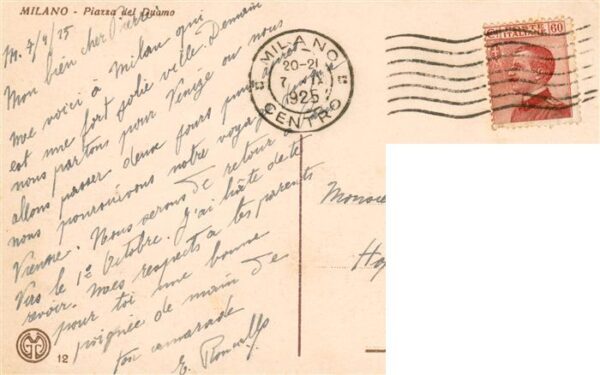 MILANO - Piazza del Duomo
M. 7/9/25
Mon bien cher Pierre
me voici à Milan qui
est une fort jolie ville. Demain
nous partons pour Venise où nous
allons passer deux jours puis
nous poursuivons notre voyage
Vienne. Nous serons de retour
vers le 1er Octobre. J'ai hâte de te
revoir. Mes respects à tes parents
pour toi une bonne
poignée de main de
ton camarade
E.
12
MILANO
20-21
7 IX
1925
CENTRO
POSTE ITALIANE 60
Monsieur